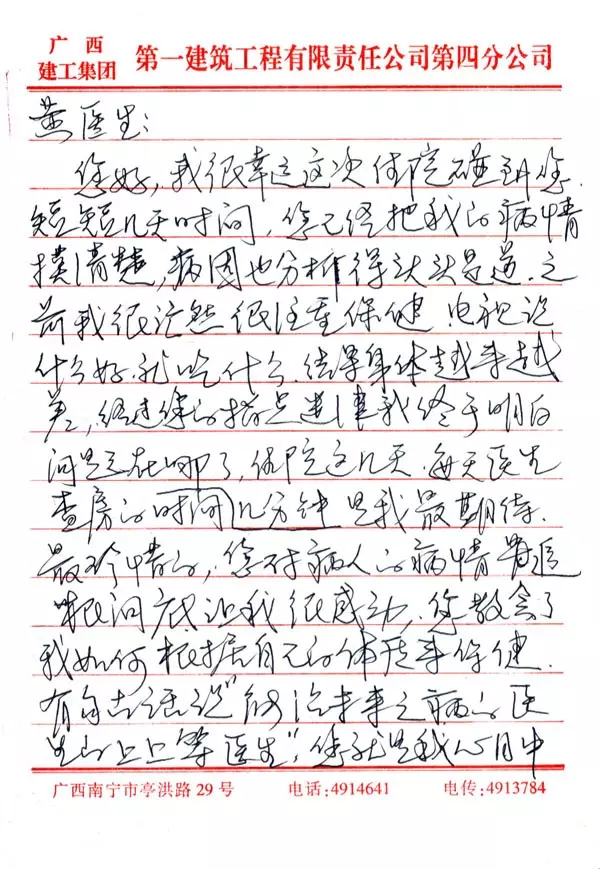 广西
建工集团 第一建筑工程有限责任公司第四分公司
黄医生:
您好,我很幸运这次住院碰到您.
短短几天时间,您已经把我的病情
摸清楚,病因也分析得头头是道.之
前我很茫然很注重保健.电视说
什么好.就吃什么.结果身体越来越
差,经过您的指点迷津我终于明白
问题在哪了,住院这几天.每天医生
查房的时间几分钟是我最期待.
最珍惜的,您对病人的病情
根问底让我很感动,您教会了
我如何根据自己的体质来保健.
有句古语说"能治未来之病的医
生的上上等医生",您就是我心目中
广西南宁市亭洪路29号 电话:4914641 电传:4913784